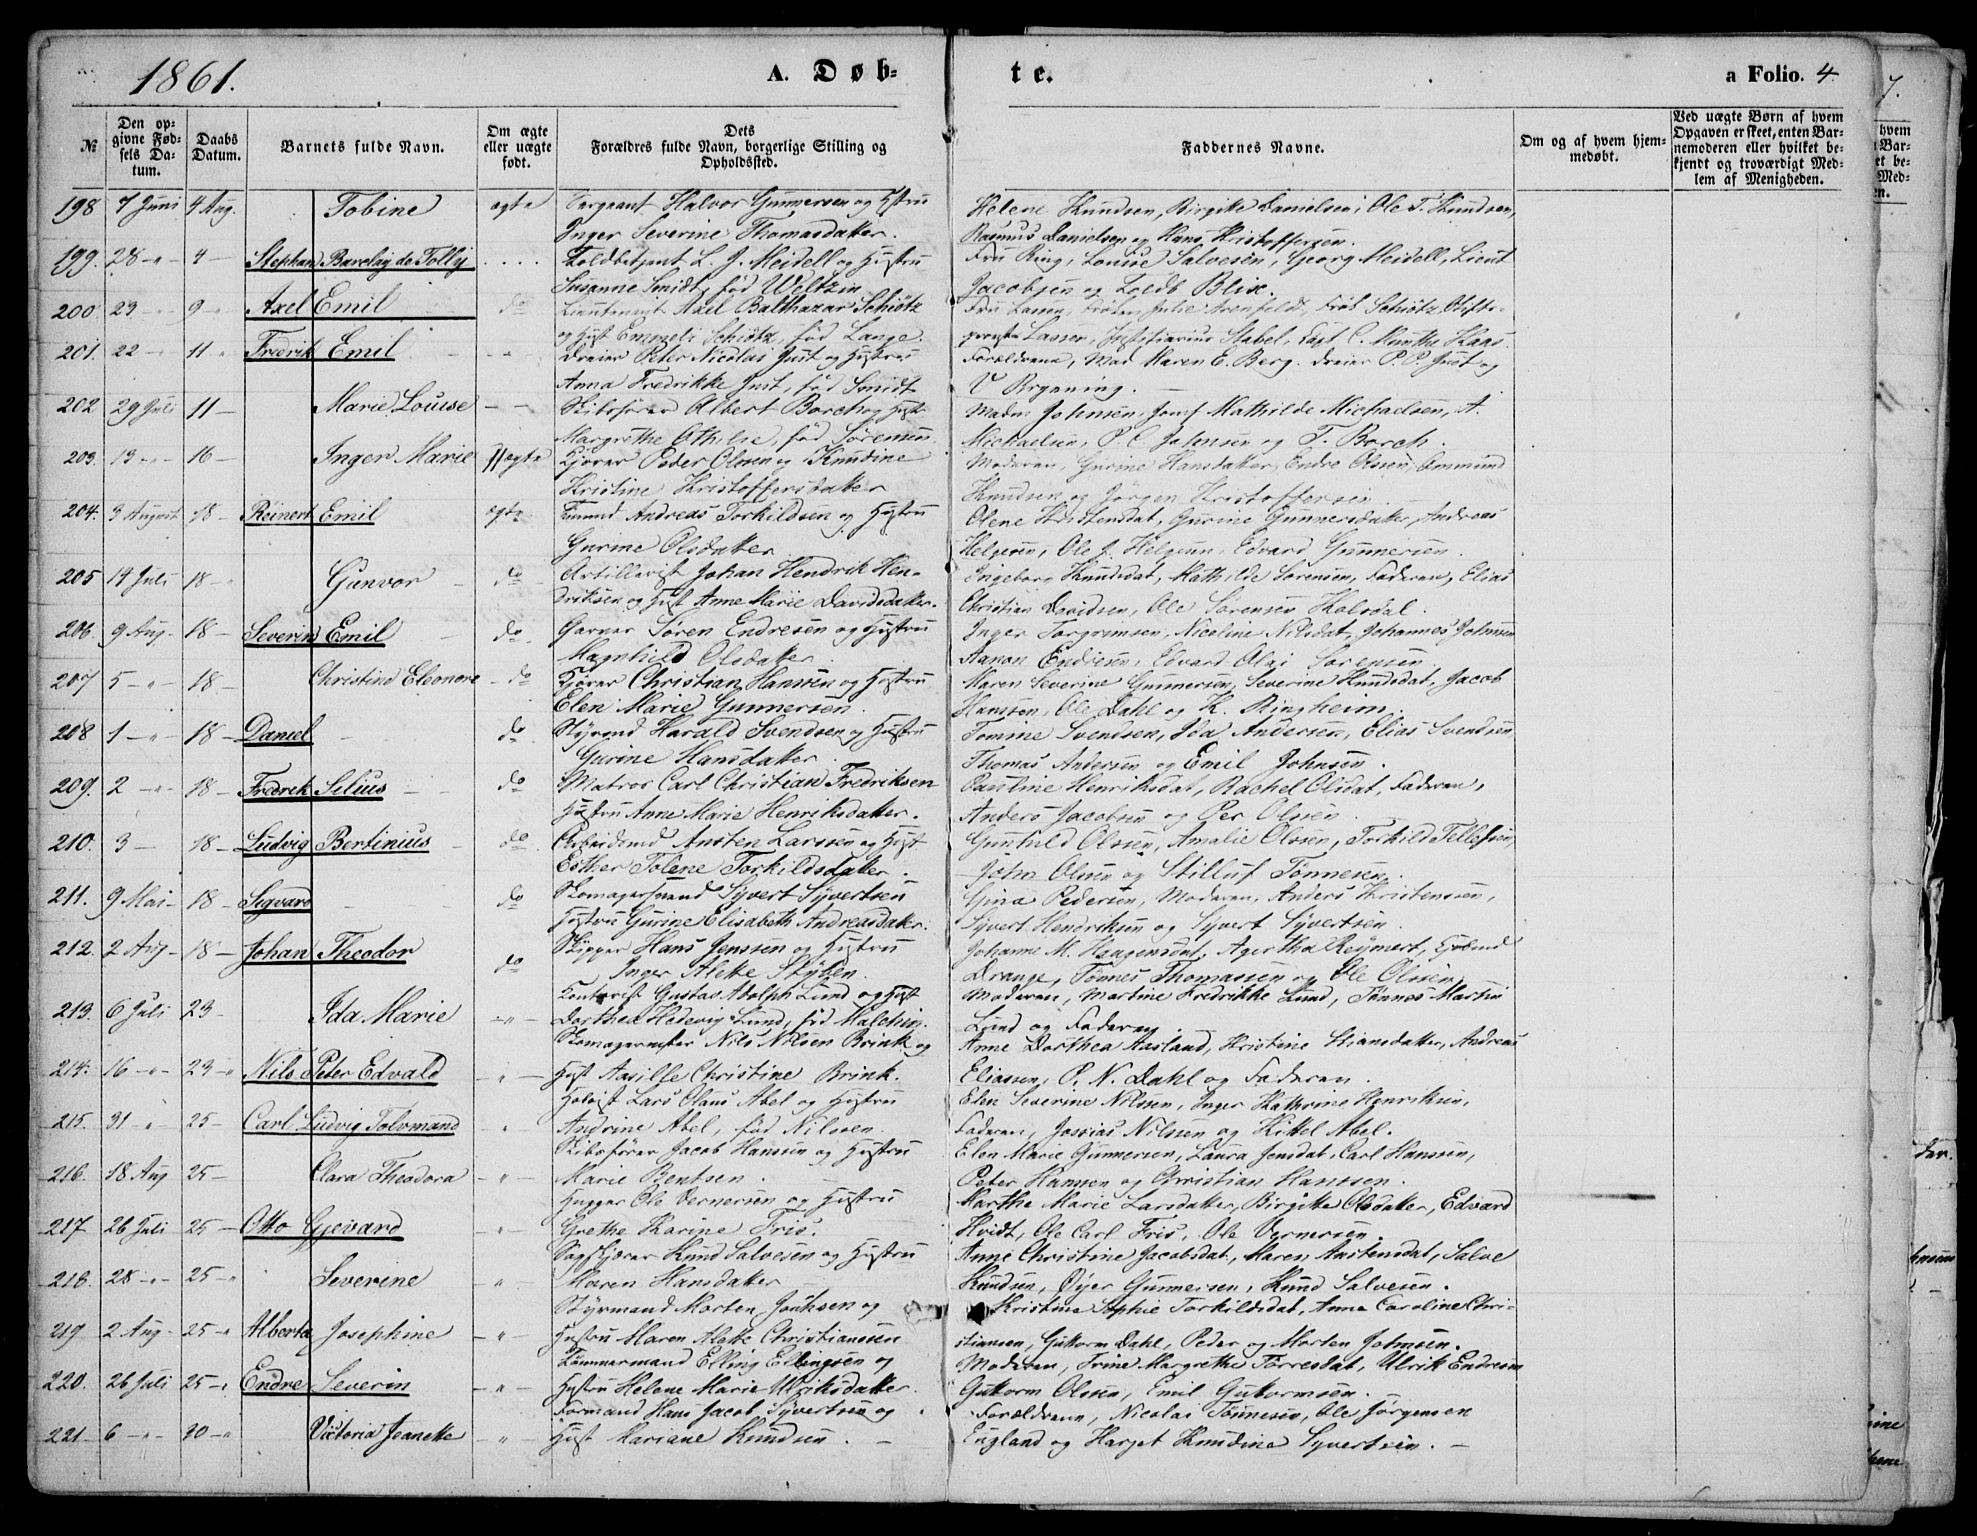 1861.
A. Døb-
te.
a Folio. 4
№
Den op-
givne Fød-
sels Da-
tum.
Daabs
Datum.
Barnets fulde Navn.
Om ægte
eller uægte
født.
Dets
Forældres fulde Navn, borgerlige Stilling og
Opholdssted.
Faddernes Navne.
Om og af hvem hjem-
medøbt.
Ved uægte Børn af hvem
Opgaven er skeet, enten Bar-
nemoderen eller hvilket be-
kjendt og troværdigt Med-
lem af Menigheden.
198 7 Juni 4 Aug. Tobine ægte Sergeant Halvor Gunnersen og Hstru
Inger Severine Thomasdatter.
Helene Knudsen, Birgitte Danielsen, Ole T. Knudsen,
Rasmus Danielsen og Hans Kristoffersen.
199. 28 -"- 4 - Stephan Barclay de Tolly Toldbetjent L. J. Meidell og Hustru
Susanne Smidt, født Weltzin
Fru Ring, Louise Salvesen, Georg Meidell, Lieut
Jacobsen og Toldb Blix.
200 23 9 Axel Emil do Lieutenant Axel Balthazar Schiötz
og Hust Emmeli Schiötz, fød Lange.
Fru Lassen, Frøken Julie Arenfeldt, Frøk Schiötz, Stifts-
provst Lassen, Justitiarius Stabel, Capt C. Munthe Kaas.
201. 22 11 Fredrik Emil Dreier Peter Nicolai Just og Hustru
Anna Fredrikke Just, født Smidt
Forældrene, Mad Maren E. Berg. Dreier P. P. Just og
V Brynning.
202 29 Juli 11 - Marie Louise Skibsfører Albert Borch og Hust
Margrethe Othilie, fød Sørensen.
Madm Johnsen, Jomf Mathilde Michaelsen, A.
Michaelsen, P. C. Johnsen og T. Borch.
203. 13 16 Inger Marie Uægte Kjører Peder Olssen og Knudine
Kristine Kristoffersdatter
Moderen, Gurine Hansdatter, Endre Olssen, Ommund
Knudsen og Jörgen Kristoffersen
204. 3 August 18 - Reinert Emil ægte Andreas Torkildsen og Hustru
Gurine Olsdatter
Olene Kristensdat, Gurine Gunnersdatter, Andreas
Helgesen, Ole J. Helgesen, Edvard Gunnersen.
205 14 Juli 18 Gunvor do Artillerist Johan Hendrik Hen-
driksen og Hust Anne Marie Davidsdatter.
Ingeborg Knudsdat, Mathilde Sørensen, Faderen, Elias
Christian Davidsen, Ole Sørensen Kalsdal.
206. 9 Aug. 18 - Severin Emil do Garver Søren Endresen og Hustru
Magnhild Olsdatter
Inger Torgrimsen, Nicoline Nilsdat, Johannes Johnsen
Aanon Endresen, Edvard Olai Sørensen.
207 5 -"- 18 - Christine Eleonore do Kjører Christian Hanssen og Hustru
Elen Marie Gunnersen.
Maren Severine Gunnersen, Severine Knudsdat, Jacob
Hanssen, Ole Dahl og K. Ringheim.
208 1 -"- 18 - Daniel do Styrmd Harald Svendsen og Hustru
Gurine Hansdatter
Tomine Svendsen, Ida Andersen, Elias Svendsen
Thomas Andersen og Emil Johnsen.
209. 2 -"- 18 - Fredrik Silius do Matros Carl Christian Fredriksen
Hustru Anne Marie Henriksdatter.
Pauline Henriksdat, Rachel Olsdat, Faderen,
Anders Jacobsen og Per Olssen.
210. 3 - 18 - Ludvig Bertinius do Arbeidsmd Austen Larssen og Hust
Esther Tolene Torkildsdatter.
Gunhild Olssen, Amalie Olssen, Torkild Tellefsen,
John Olssen og Stilluf Tönnesen.
211. 9 Mai - 18 - Sigvard do Skomagersvend Syvert Syvertsen
Hustru Gurine Elisabeth Andreasdatter.
Gina Pedersen, Moderen, Anders Kristenssen,
Syvert Hendriksen og Syvert Syvertsen.
212. 2 Aug - 18 - Johan Theodor do Skipper Hans Jenssen og Hustru
Inger Alette Styhen.
Johanne M. Haagensdat, Agertha Reymert, Gjermd
Drange, Tönnes Thomassen og Ole Olssen
213. 6 Juli 23 - Ida Marie -"- Kontorist Gustav Adolph Lund og Hust
Dorthea Hedevig Lund, fød Malchin.
Moderen, Martine Fredrikke Lund, Tönnes Martin
Lund og Faderen.
214. 16 -"- 23 -" Nils Peter Edvald -"- Skomagermester Nils Nilsen Brink og
Hust Aasille Christine Brink.
Anne Dorthea Aasland, Kristine Stiansdatter, Andreas
Eliassen, P. N. Dahl og Faderen.
215. 31 " 25 - Carl Ludvig Tolvmand " Hoboist Lars Olaus Abel og Hustru
Andrine Abel, fød Nilssen.
Elen Severine Nilssen, Inger Kathrine Henriksen,
Faderen, Jossias Nilssen og Kittel Abel.
216. 18 Aug 25 - Clara Theodora -"- Skibsfører Jacob Hanssen og Hustru
Marie Bentsen.
Elen Marie Gunnersen, Laura Jensdat, Carl Hanssen,
Peter Hanssen og Christian Hanssen.
217 26 Juli 25 - Otto Gjevard " Hugger Ole Vernersen og Hustru
Grethe Karine Friis.
Marthe Marie Larsdatter, Birgitte Olsdatter, Edvard
Hvidt, Ole Carl Friis, Ole Vernersen.
218. 28 -"- 25 -" Severine -"- Sagskjærer Knud Salvesen og Hustru
Maren Hansdatter
Anne Christine Jacobsdat, Maren Austensdat, Salve
Knudsen, Öyer Gunnersen, Knud Salvesen.
219 2 Aug - 25 -" Alberta Josephine -"- Styrmand Morten Jonhsen og
Hustru Maren Alette Christianssen
Kristine Sophie Torkildsdat, Anna Caroline Chri-
stiansen, Guttorm Dahl, Peder og Morten Johnsen.
220. 26 Juli 25 -" Endre Severin -"- Tømmermand Elling Ellingsen og
Hustru Helene Marie Ulriksdatter.
Moderen, Trine Margrethe Torresdat, Ulrik Endresen
Guttorm Olssen, Emil Guttormsen.
221. 6 -"- 30 -" Victoria Jeanette " Formand Hans Jacob Syvertsen og
Hust Mariane Knudsen.
Forældrene, Nicolai Tönnesen, Ole Jörgensen
England og Harjet Knudine Syvertsen.
7.